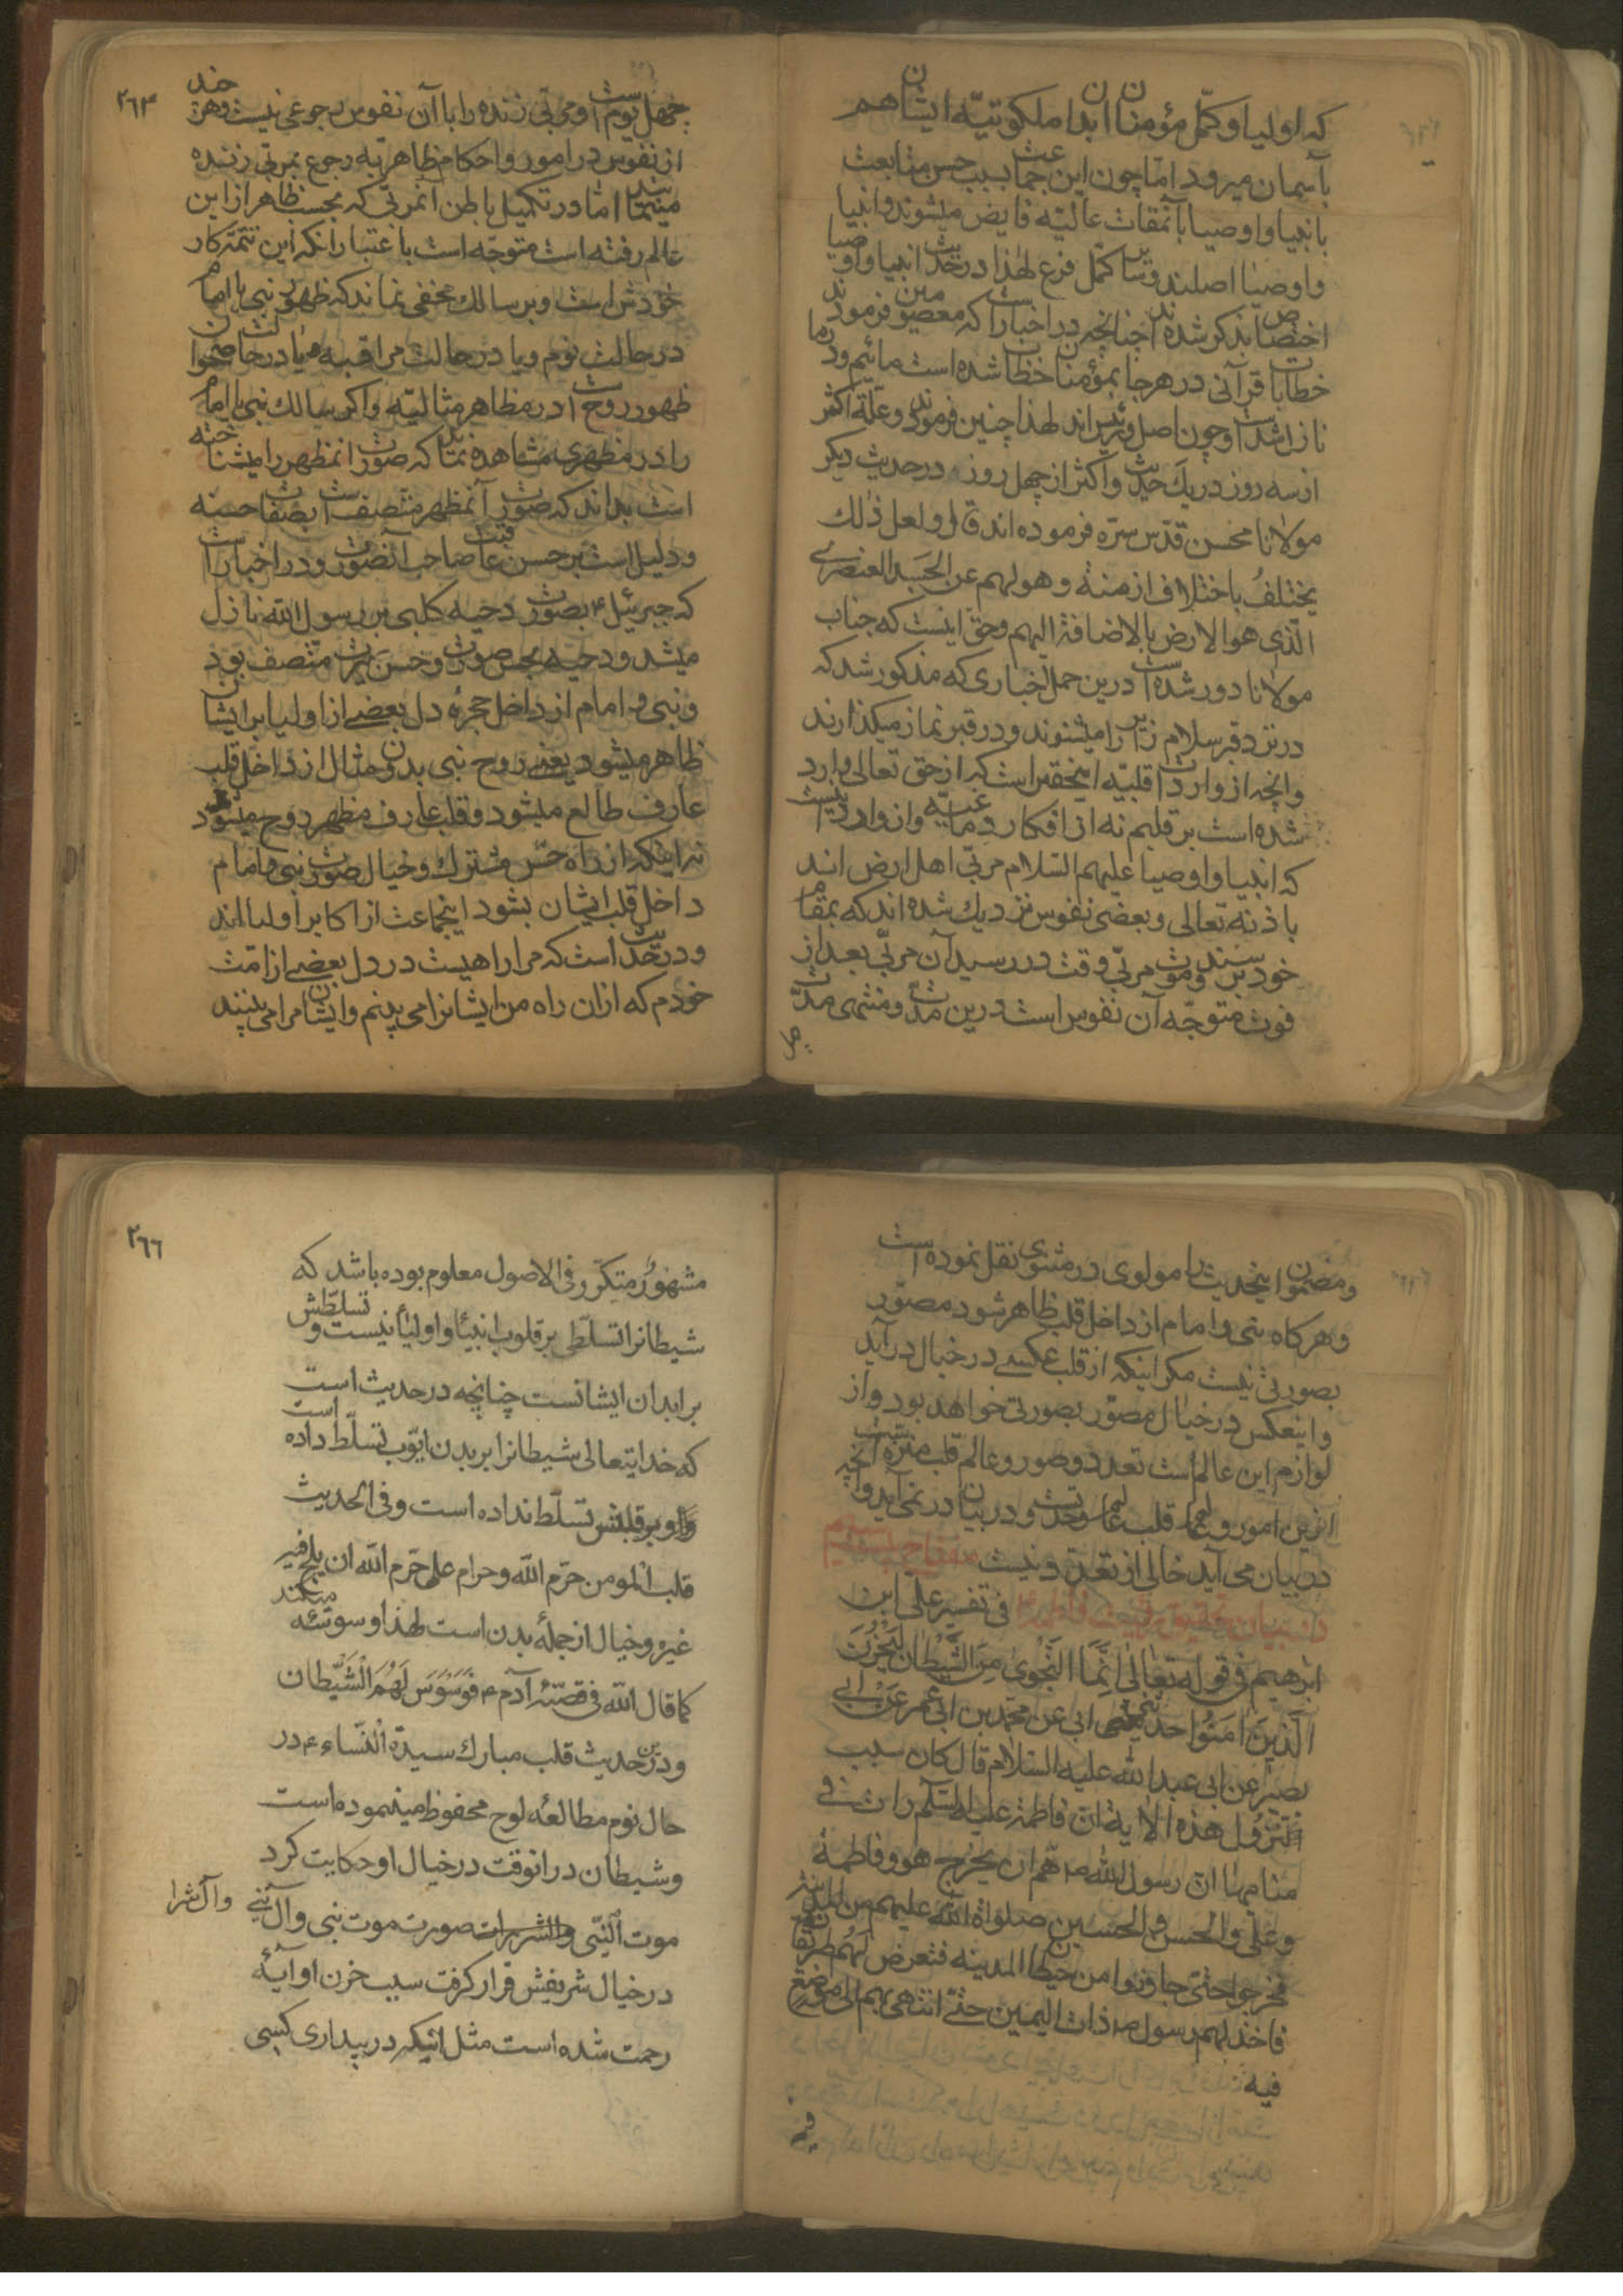 که اولیا و کمّل مؤمنان ابدان ملکوتیّه ایشان هم
بآسمان میرود امّا چون این جماعت بسبب حسن متابعت
بانبیا و اوصیا بآنمقامات عالیّه فایض میشوند و انبیا
و اوصیا اصلند و سایر کمّل فرع لهذا در حدیث انبیا و اوصیا
اختصاص بذکر شده‌اند چنانچه در اخبار است که معصومین فرمودند
خطابات قرآنی در هر جا بمؤمنان خطاب شده است مائیم و در ما
نازل شده است و چون اصل و رئیس‌اند لهذا چنین فرمودند و علّة اکثر
از سه روز در یك حدیث و اکثر از چهل روز در حدیث دیکر
مولانا محسن قدّس سرّه فرموده‌اند قال و لعل ذٰلك
یختلفُ باختلاف ازمنة و هولهم عن الجَسَد العنصرے
الّذی هو الارض بالاضافة الیهم و حق اینست که جناب
مولانا دور شده است درین حمل اخباری که مذکور شد که
در نزد قبر سلام زایر را میشنوند و در قبر نماز میکذارند
و انچه از واردات قلبیّه اینحقیر است که از حق تعالی وارد
شده است بر قلبم نه از افکار دماغیّه و از واردیست
که انبیا و اوصیا علیهم السّلام مربّی اهل ارض اند
باذنه تعالی و بعضی نفوس نزدیك شده‌اند که بمقام
خود برسند و موت مربّی وقت در رسید آن مربّی بعد از
فوت متوجّه آن نفوس است درین مدّت و منتهی مدّت
چهل
٢٦٤
چهل یوم است و مربّی زنده را با آن نفوس رجوعی نیست و هر چند
از نفوس در امور و احکام ظاهریّه رجوع بمربّی زنده
مینمایند امّا در تکمیل باطن آنمربّی که بحسب ظاهر از این
عالم رفته است متوجّه است باعتبار انکه این تتمّهٔ کار
خودش است و بر سالك مخفی نماند که ظهور نبی یا امام
در حالت نوم و یا در حالت مراقبه و یا در حالت صحو آن
ظهور روح است در مظاهر مثالیّه و اکر سالك نبی یا امام
را در مظهری مشاهده نماید که صورت انمظهر را میشناخته
است بداند که صورت آنمظهر متّصف است بصفات حسنه
و دلیل است بر حسن عاقبت صاحب آنصورت و در اخبار است
که جبرئیل ع بصورت دحیه کلبی بر رسول الله نازل
میشد و دحیه بحسن صورت و حسن سیرت متّصف بود
و نبی و امام از داخل حجرهٔ دل بعضے از اولیا بر ایشان
ظاهر میشود یعنی روح نبی بدون مثال از داخل قلب
عارف طالع میشود و قلب عارف مظهر روح میشود
نه اینکه از راه حسّ مشترك و خیال صورت نبی و امام
داخل قلب ایشان بشود اینجماعت از اکابر اولیااند
و در حدیث است که مرا راهیست در دل بعضے از امّت
خودم که از ان راه من ایشانرا می بینم و ایشان مرا می بینند
و مضمون اینحدیث را مولوی در مثنوی نقل نموده است
و هر کاه نبی و امام از داخل قلب ظاهر شود مصوّر
بصورتی نیست مکر اینکه از قلب عکسے در خیال در آید
و اینعکس در خیال مصوّر بصورتی خواهد بود و از
لوازم این عالم است تعدد و صور و عالم قلب منزّه است انچه
ازین امور و عالم قلب عالم وحدتست و در بیان در نمی آید و انچه
در بیان می آید خالی از تعدّد نیست
در بیان
فی تفسیر علی ابن
ابرهیم فی قوله تعالی انَّمَا النَّجْوٰی مِنَ الشَّیْطان لِیَحْزُنَ
الَّذینَ اٰمَنُوا حدثنی ابی عن محمّد بن ابی عمیر عن ابی
بصیر عن ابی عبد الله علیه السّلام قال کان سبب
نزول هذه الآیة ان فاطمة علیها السّلم رات فی
منامها ان رسول الله ص همّ ان یخرج هو و فاطمة
و علی و الحسن و الحسین صلواة الله علیهم من المدینة
فخرجوا حتی جاوزوا من حیطان المدینه فتعرض لهم طریقان
فاخذ بهم رسول ص ذات الیمین حتی انتهی بهم الی موضع
فیه
٢٦٦
مشهور متکرّر فی الاصول معلوم بوده باشد که
شیطانرا تسلّطی بر قلوب انبیأ و اولیأ نیست و تسلّطش
بر ابدان ایشانست چنانچه در حدیث است
که خدایتعالی شیطانرا بر بدن ایّوب تسلّط داده است
و او بر قلبش تسلّط نداده است و فی الحدیث
قلب المومن حرّم الله و حرام علی حرّم الله ان یلج فیه
غیره و خیال از جملهٔ بدن است لهذا وسوسه میکند
کما قال الله فی قصّهٔ آدم ع فَوَسْوَسَ لَهُمَ الْشَّیْطان
و درین حدیث قلب مبارك سیدة النّساء ع در
حال نوم مطالعهٔ لوح محفوظ مینموده است
و شیطان در انوقت در خیال او حکایت کرد
موت النّبی صورت موت نبی و آل نبی و آل شرا
در خیال شریفش قرار کرفت سبب حزن او آیهٔ
رحمت شده است مثل انیکه در بیداری کسی